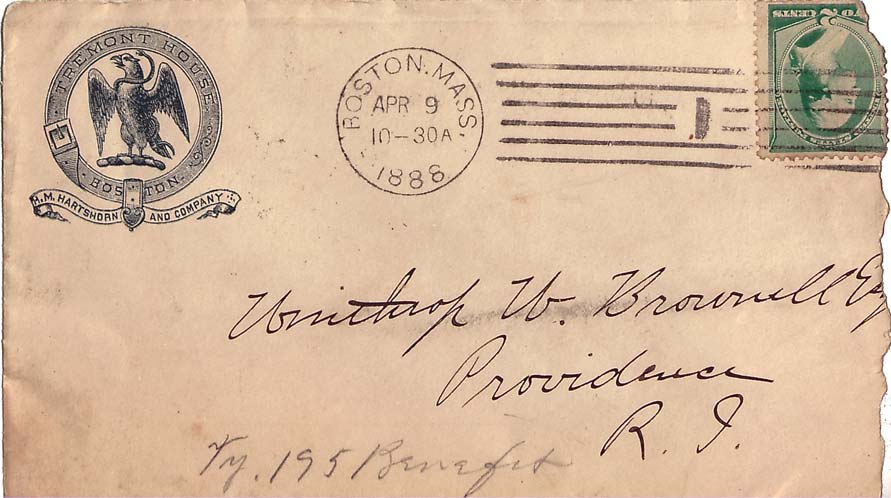 TREMONT HOUSE
BOSTON.
H.M. HARTSHORN AND COMPANY
BOSTON. MASS.
APR 9
10-30A
1888
CENTS
Winthrop W. Brownell Esq
Providence
R. I.
195 Benefit